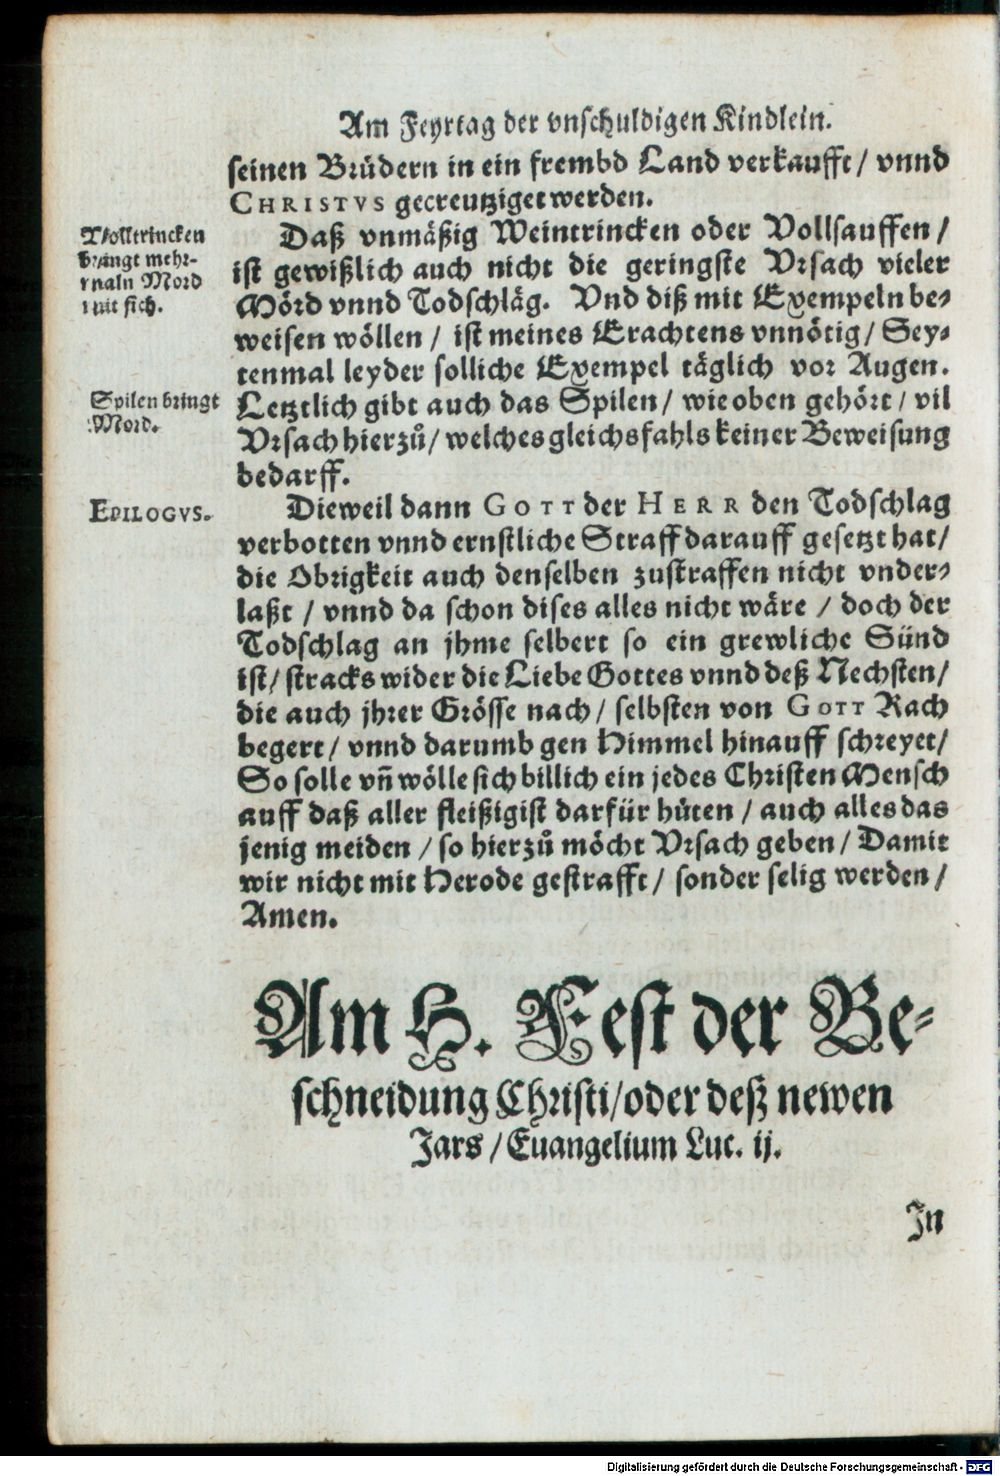 Am Feyrtag der vnschuldigen Kindlein.
seinen Brüdern in ein frembd Land verkaufft / vnnd
CHRISTVS gecreutziget werden.
Daß vnmäßig Weintrincken oder Vollsauffen /
ist gewißlich auch nicht die geringste Vrsach vieler
Mörd vnnd Todschläg. Vnd diß mit Exempeln be-
weisen wöllen / ist meines Erachtens vnnötig / Sey-
tenmal leyder solliche Exempel täglich vor Augen.
Letztlich gibt auch das Spilen / wie oben gehört / vil
Vrsach hierzů / welches gleichsfahls keiner Beweisung
bedarff.
Volltrincken
bringt mehr-
maln Mord
mit sich.
Spilen bringt
Mord.
EPILOGVS.
Dieweil dann GOTT der HERR den Todschlag
verbotten vnnd ernstliche Straff darauff gesetzt hat /
die Obrigkeit auch denselben zustraffen nicht vnder-
laßt / vnnd da schon dises alles nicht wäre / doch der
Todschlag an jhme selbert so ein grewliche Sünd
ist / stracks wider die Liebe Gottes vnnd deß Nechsten /
die auch jhrer Grösse nach / selbsten von GOTT Rach
begert / vnnd darumb gen Himmel hinauff schreyet /
So solle vñ wölle sich billich ein jedes Christen Mensch
auff daß aller fleißigist darfür hüten / auch alles das
jenig meiden / so hierzů möcht Vrsach geben / Damit
wir nicht mit Herode gestrafft / sonder selig werden /
Amen.
Am H. Fest der Be-
schneidung Christi / oder deß newen
Jars / Euangelium Luc. ij.
In
Digitalisierung gefördert durch die Deutsche Forschungsgemeinschaft - DFG